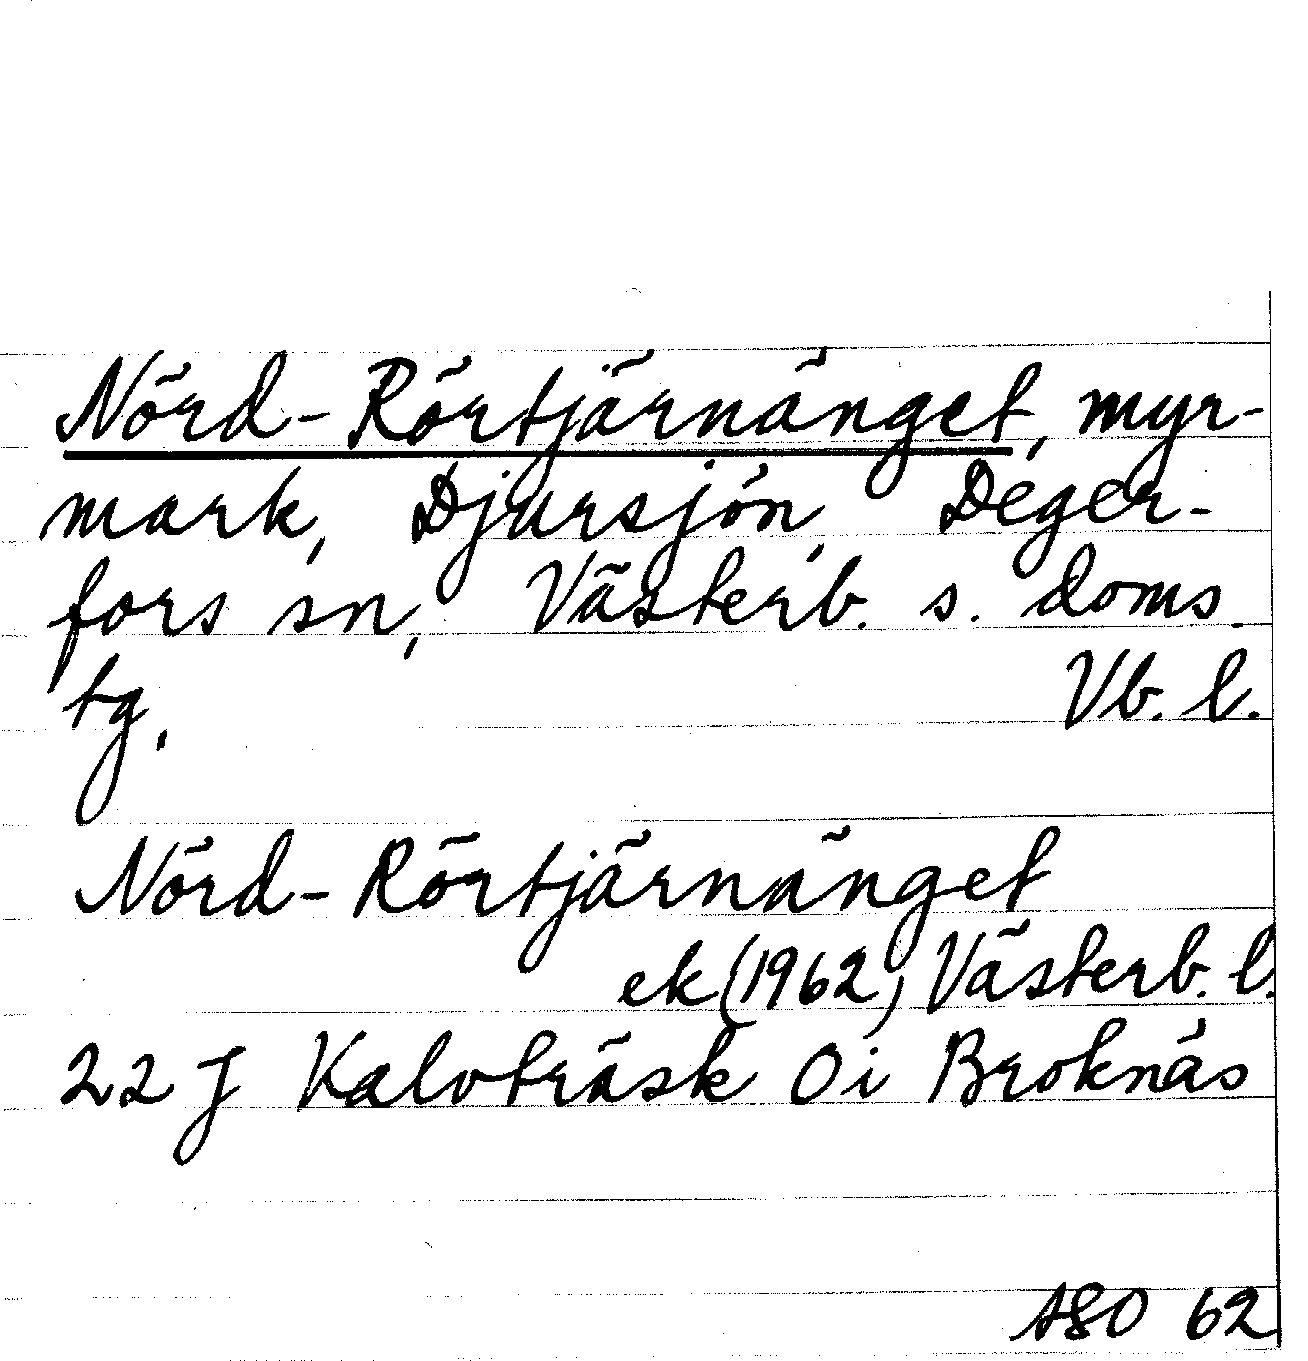 Nörd-Rörtjärnänget, myr-
mark, Djursjön, Deger-
fors sn, Västerb. s. doms.
tg. Vb. l.
Nörd-Rörtjärnänget
ek (1962) Västerb. l.
22 J Kalvträsk 0i Broknäs
ASO 62